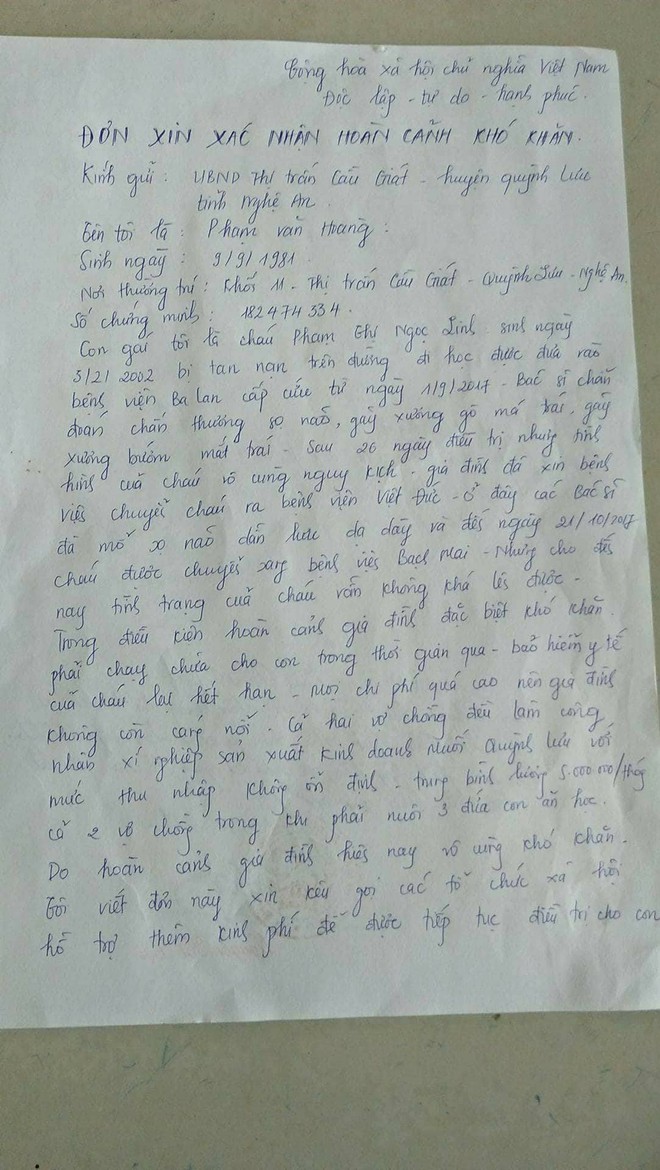 Cộng hoà xã hội chủ nghĩa Việt Nam
Độc lập - tự do - hạnh phúc.
ĐƠN XIN XÁC NHẬN HOÀN CẢNH KHÓ KHĂN.
Kính gửi : UBND Thị trấn Cầu Giát - huyện quỳnh Lưu
tỉnh Nghệ An.
Tên tôi là : Phạm văn Hoàng.
Sinh ngày : 9/9/1981.
Nơi thường trú : Khối 11 - Thị trấn Cầu Giát - Quỳnh Lưu - Nghệ An.
Số chứng minh : 182474334.
Con gái tôi là cháu Phạm Thị Ngọc Linh sinh ngày
3/2/2002 bị tan nạn trên đường đi học được đưa vào
bệnh viện Ba Lan cấp cứu từ ngày 1/9/2017 - Bác sĩ chẩn
đoán chấn thương sọ não, gãy xương gò má trái, gãy
xương bướm mắt trái - Sau 26 ngày điều trị nhưng tình
hình của cháu vô cùng nguy kịch. gia đình đã xin bệnh
viện chuyển cháu ra bệnh viện Việt Đức - ở đây các Bác sĩ
đã mổ sọ não dẫn lưu dạ dày và đến ngày 21/10/2017
cháu được chuyển sang bệnh viện Bạch Mai - Nhưng cho đến
nay tình trạng của cháu vẫn không khá lên được -
Trong điều kiện hoàn cảnh gia đình đặc biệt khó khăn.
phải chạy chữa cho con trong thời gian qua - bảo hiểm y tế
của cháu lại hết hạn - mọi chi phí quá cao nên gia đình
không còn cáng nổi. Cả hai vợ chồng đều làm công
nhân xí nghiệp sản xuất kinh doanh muối Quỳnh lưu với
mức thu nhập không ổn định - trung bình lương 5.000.000/tháng
cả 2 vợ chồng trong khi phải nuôi 3 đứa con ăn học.
Do hoàn cảnh gia đình hiện nay vô cùng khó khăn.
Tôi viết đơn này xin kêu gọi các tổ chức xã hội
hỗ trợ thêm kinh phí để được tiếp tục điều trị cho con